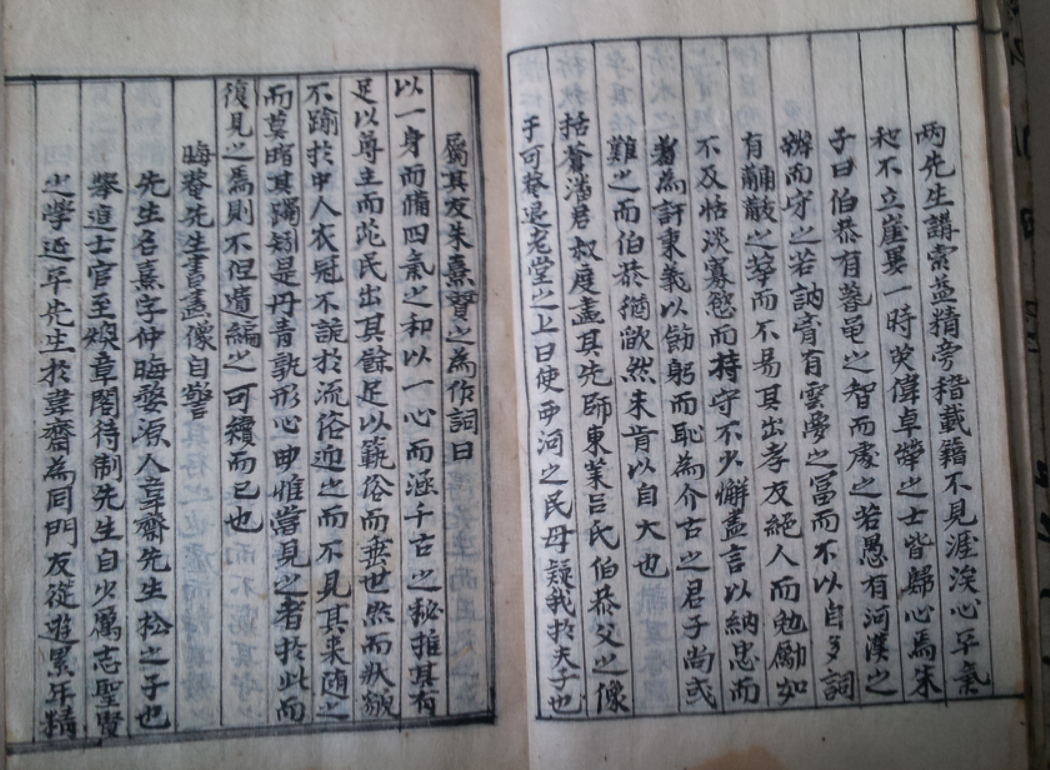 兩先生講索益精旁稽載籍不見涯涘心平氣
和不立崖異一時英偉卓犖之士皆歸心焉朱
子曰伯恭有蓍龜之智而處之若愚有河漢之
辯而守之若訥胷有雲夢之富而不以自多詞
有黼黻之華而不易其出孝友絕人而勉勵如
不及恬淡寡慾而持守不少懈盡言以納忠而
羞為訐秉義以飭躬而恥為介古之君子尚或
難之而伯恭猶歉然未肯以自大也
括蒼潘君叔度畫其先師東萊呂氏伯恭父之像
于可菴退老堂之上曰使西河之民毋疑我於夫子也
屬其友朱熹賛之為作詞曰
以一身而備四氣之和以一心而涵千古之秘推其有
足以尊主而庇民出其餘足以範俗而垂世然而狀貌
不踰於中人衣冠不詭於流俗迎之而不見其来随之
而莫睹其躅矧是丹青孰形心曲惟嘗見之者於此而
復見之焉則不但遺編之可續而已也
晦菴先生書畫像自警
先生名熹字仲晦婺源人韋齋先生松之子也
舉進士官至煥章閣待制先生自少厲志聖賢
之學延平先生於韋齋為同門友從遊累年精